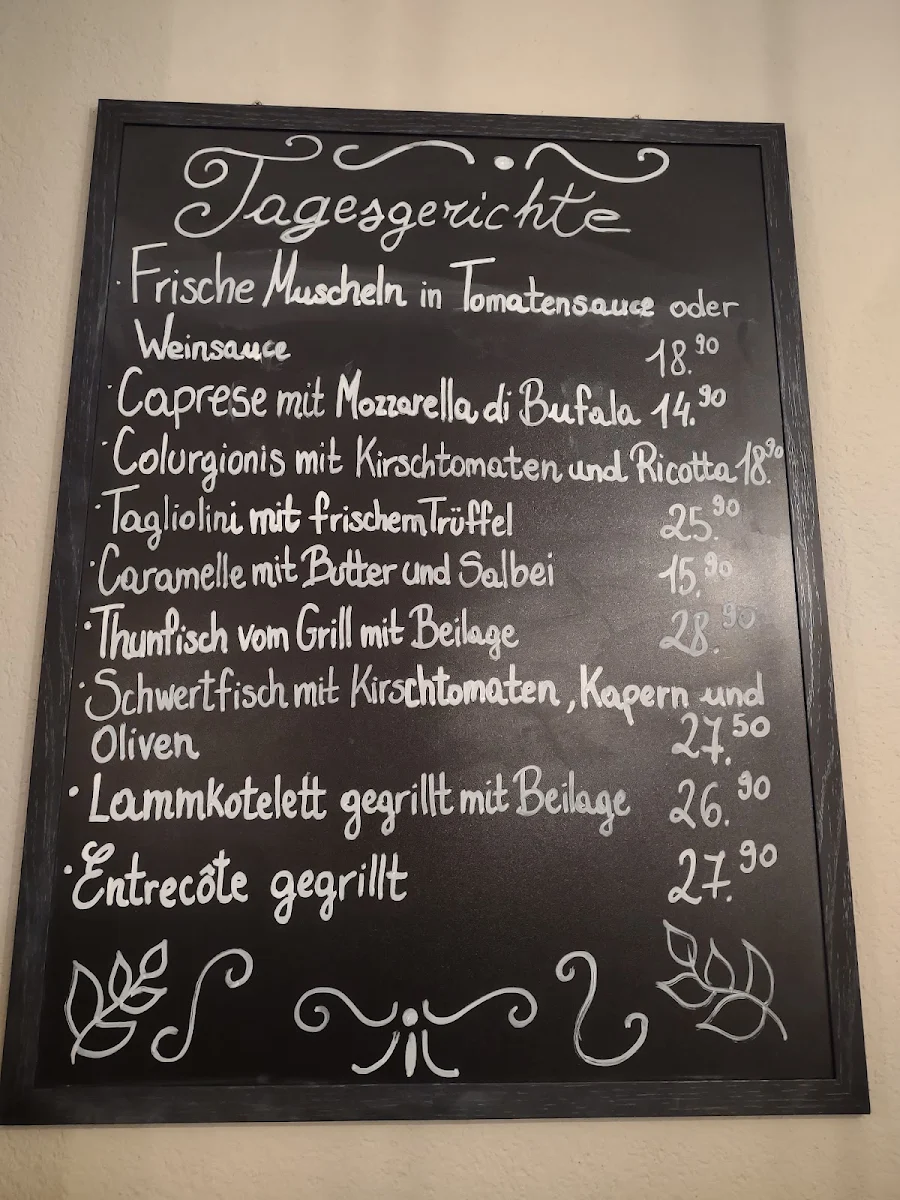 Tagesgerichte
· Frische Muscheln in Tomatensauce oder
Weinsauce 18.90
· Caprese mit Mozzarella di Bufala 14.90
· Colurgionis mit Kirschtomaten und Ricotta 18.90
· Tagliolini mit frischem Trüffel 25.90
· Caramelle mit Butter und Salbei 15.90
· Thunfisch vom Grill mit Beilage 28.90
· Schwertfisch mit Kirschtomaten, Kapern und
Oliven 27.50
· Lammkotelett gegrillt mit Beilage 26.90
· Entrecôte gegrillt 27.90